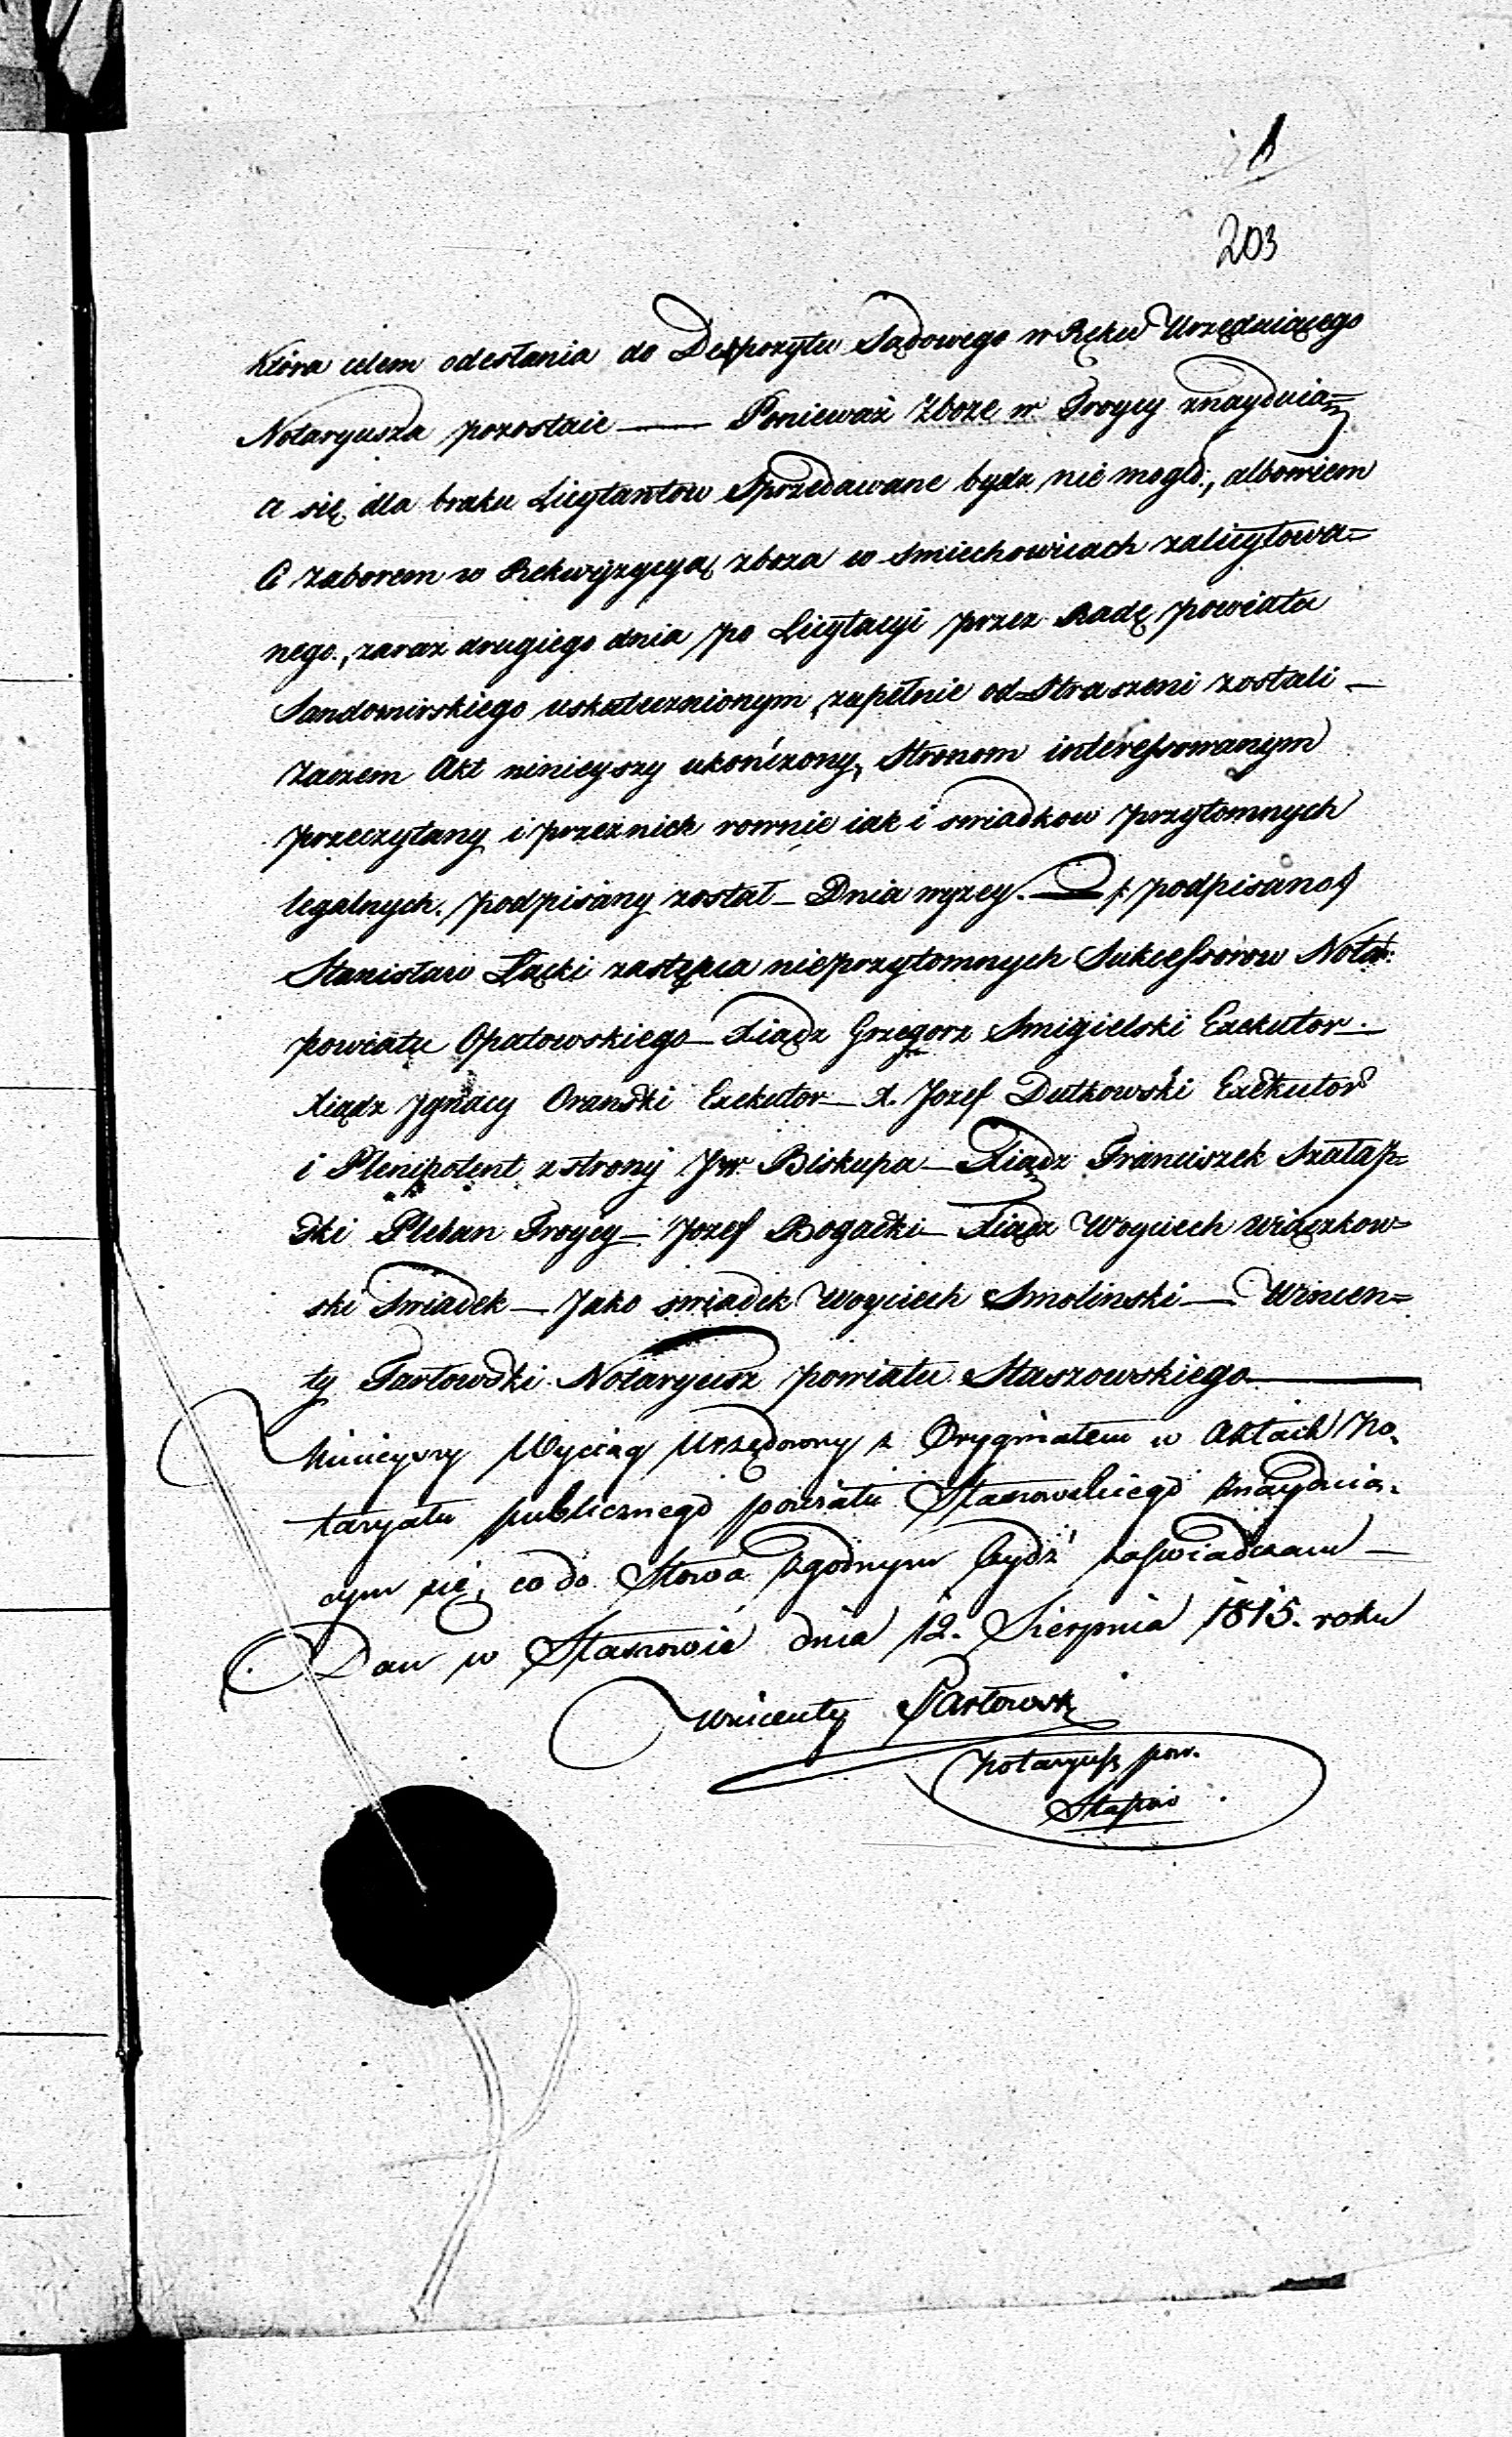 203
która celem odesłania do Depozytu Sądowego w Ręku Urzęduiącego
Notaryusza pozostaie — Ponieważ Zboże w Troycy znayduią=
ce się dla braku Licytantow Sprzedawane bydz nie mogło, albowiem
Ci zaborem w Rekwizycyą zboża w Smiechowicach zalicytowa=
nego, zaraz drugiego dnia po Licytacyi przez Radę powiatu
Sandomirskiego uskutecznionym, zupełnie od=Straszeni zostali —
Zaczem Akt ninieyszy ukończony, Stronom interessowanym
przeczytany i przez nich rownie iak i swiadkow przytomnych
legalnych podpisany został — Dnia wyzey. — /: podpisano :/
Stanisław Łącki zastępca nieprzytomnych Sukcessorow Notar:
powiatu Opatowskiego — Xiądz Grzegorz Smigielski Exekutor —
Xiądz Jgnacy Oranski Exekutor — X. Jozef Dutkowski Exekutor
i Plenipotent z strony JW. Biskupa — Xiądz Franciszek Szatap=
ski Pleban Troycy — Jozef Bogacki — Xiądz Woyciech Wiączkow=
ski Swiadek — Jako swiadek Woyciech Smolinski — Wincen=
ty Tarłowski Notaryusz powiatu Staszowskiego —
Ninieyszy Wyciąg Urzędowny z Oryginałem w Aktach No=
taryatu publicznego powiatu Staszowskiego znayduią=
cym się, co do Słowa zgodnym bydź zaświadczam —
Dan w Staszowie dnia 12. Sierpnia 1815. roku
Wincenty Tarłowski
Notaryusz pow.
Staszow